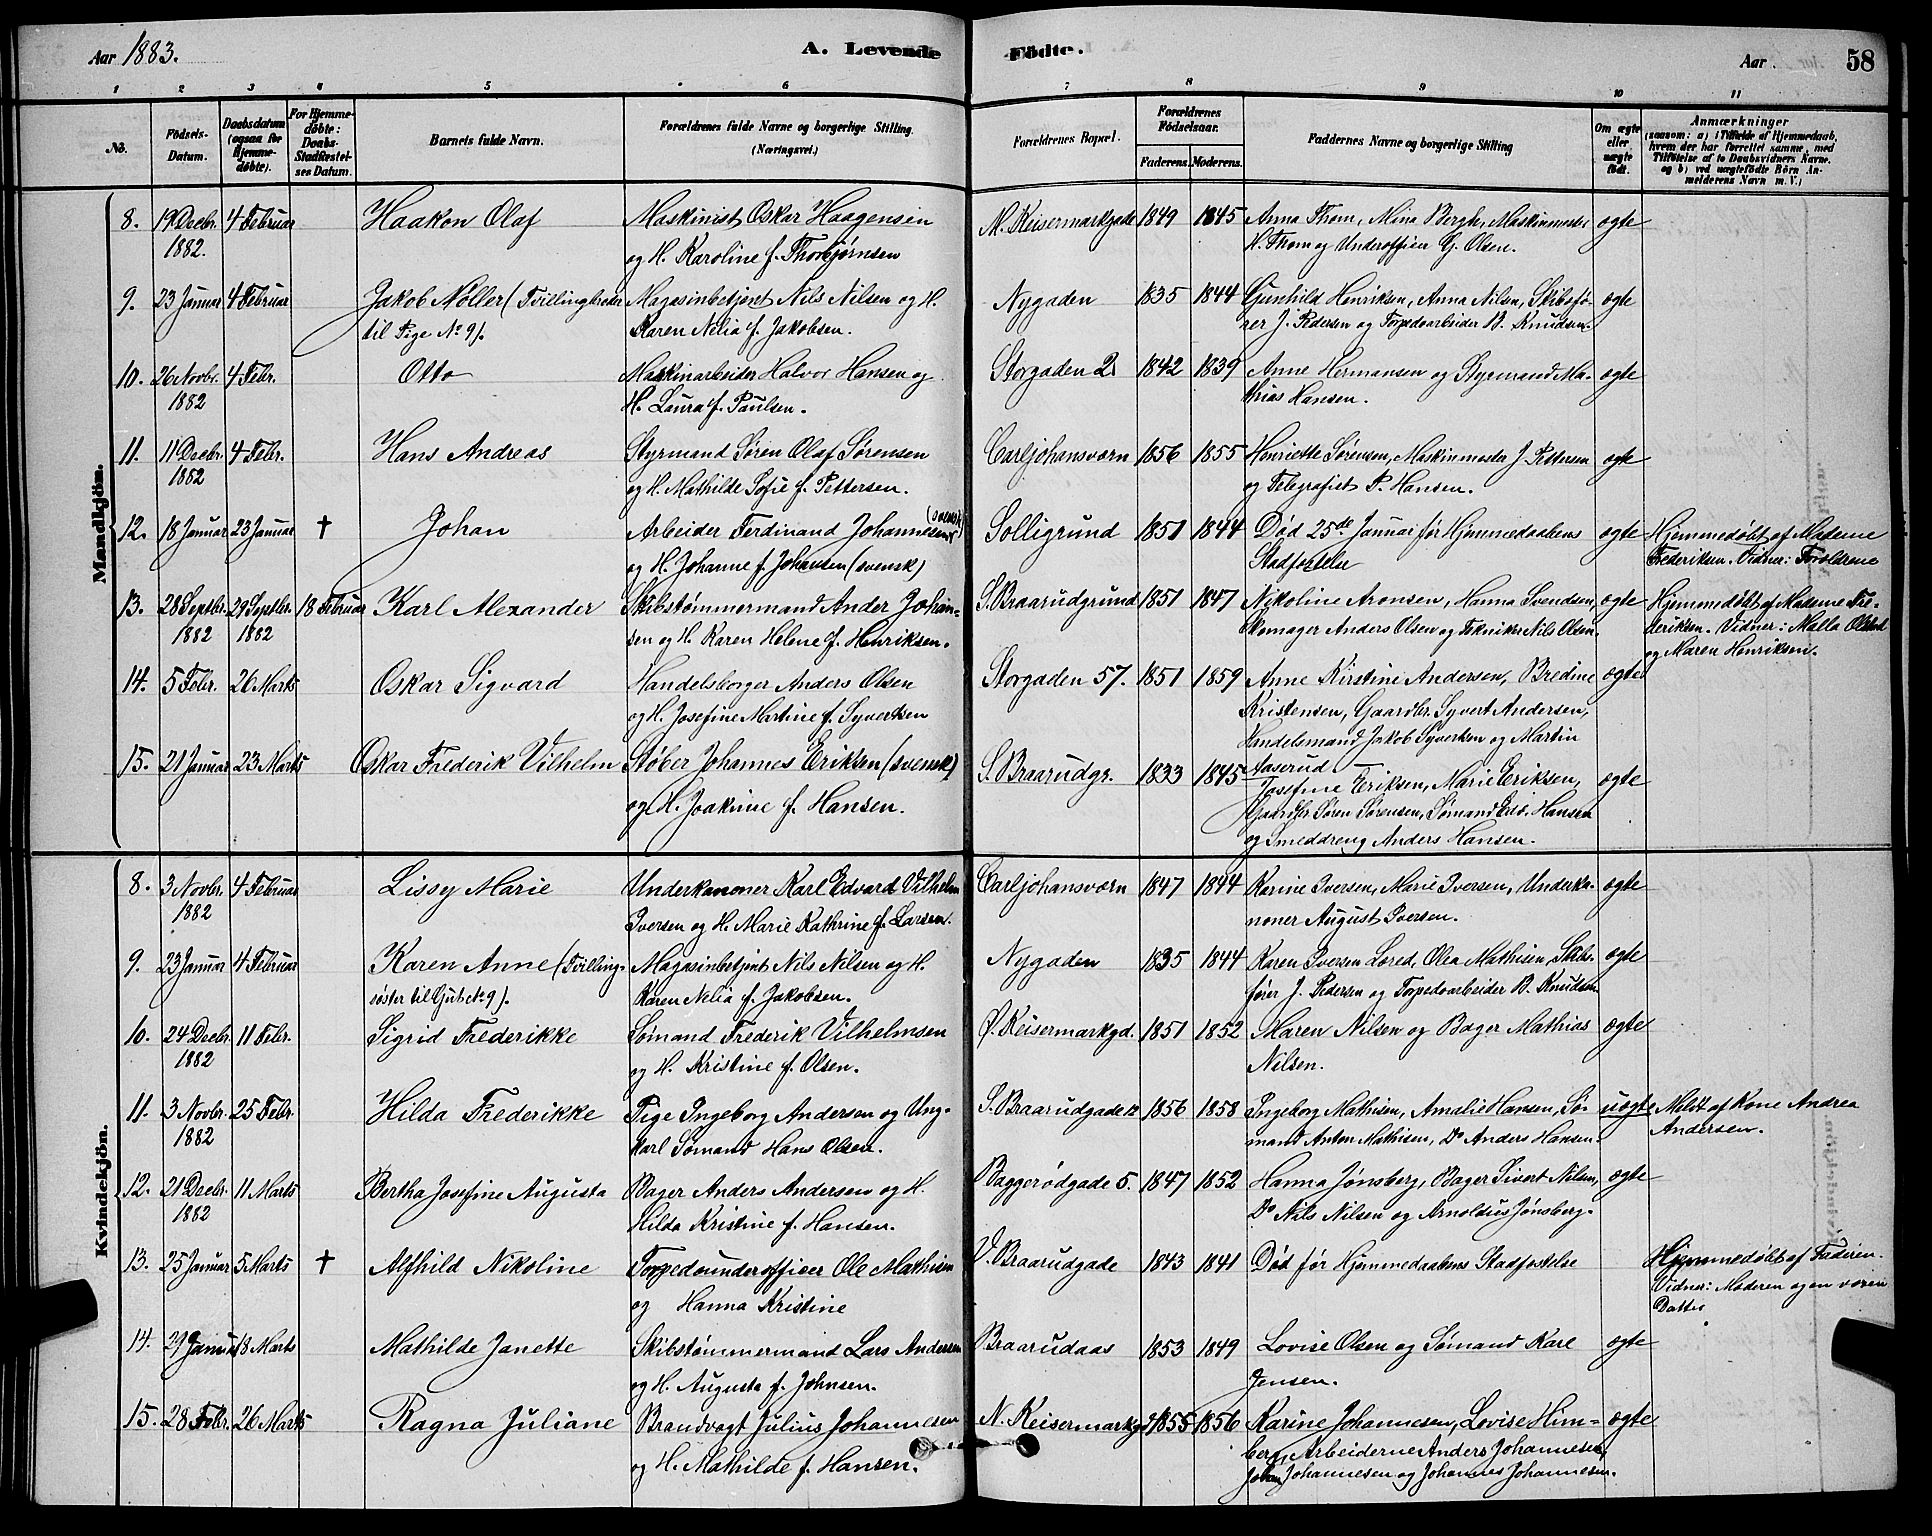 Aar 1883. A. Levende Födte. Aar 58
1 2 3 4 5 6 7 8 9 10 11
No. Födsels-Datum. Daabsdatum (ogsaa for Hjemmedøbte). For Hjemmedøbte: Daabs-Stadfæstelses Datum. Barnets fulde Navn. Forældrenes fulde Navne og borgerlige Stilling. (Næringsvei.) Forældrenes Bopæl. Forældrenes Födselsaar. Faderens. Moderens. Faddernes Navne og borgerlige Stilling Om ægte eller uægte født. Anmærkninger (saasom: a) i Tilfælde af Hjemmedaab, hvem der har forrettet samme, med Tilføielse af to Daabsvidners Navne, og b) ved uægtefødte Börn Anmelderens Navn m. V.)
Mandkjön.
8. 19 Decbr. 4 Februar Haakon Olaf Maskinist Oskar Haagensen M. Keisermarkgade 1849 1845 Anna Thom, Mina Bergh, Maskinmester ægte
1882. og H. Karoline f. Thorbjørnsen H. Thom og Underofficer G. Olsen.
9. 23 Januar 4 Februar Jakob Møller (Tvillingbroder Magasinbetjent Nils Nilsen og H. Nygaden 1835 1844 Gunhild Henriksen, Anna Nilsen, Skibsfø- ægte
til Pige No 9). Karen Nelia f. Jakobsen. rer J. Pedersen og Torpedoarbeider B. Knudsen.
10. 26 Novbr. 4 Febr. Otto Maskinarbeider Halvor Hansen og Storgaden 2 1842 1839 Anne Hermansen og Styrmand Ma- ægte
1882 H. Laura f. Paulsen. thias Hansen.
11. 11 Decbr. 4 Febr. Hans Andreas Styrmand Søren Olaf Sørensen Carljohansværn 1856 1855 Henriette Sørensen, Maskinmester J. Pettersen ægte
1882 og H. Mathilde Sofie f. Pettersen. og Telegrafist P. Hansen.
12. 18 Januar 23 Januar † Johan Arbeider Ferdinand Johannesen (svensk) Solligrund 1851 1844 Død 25de Januar før Hjemmedaabens ægte Hjemmedøbt af Madame
og H. Johanne f. Johansen (svensk) Stadfæstelse Frederiksen. Vidner: Forældrene
13. 28 Septbr. 29 Septbr. 18 Februar Karl Alexander Skibstømmermand Ander Johan- S. Braarudgrund 1851 1847 Nikoline Aronsen, Hanna Svendsen, ægte Hjemmedøbt af Madame Fre-
1882 1882 sen og H. Karen Helene f. Henriksen. Skomager Anders Olsen og Tekniker Nils Olsen. deriksen. Vidner: Malla Olstad
og Maren Henriksen.
14. 5 Febr. 26 Marts Oskar Sigvard Handelsborger Anders Olsen Storgaden 57. 1851 1859 Anne Kirstine Andersen, Bredine ægte
og H. Josefine Martine f. Syvertsen Kristensen, Gaardbr. Syvert Andersen,
Handelsmand Jakob Syvertsen og Martin
Aaserud
15. 21 Januar 23 Marts Oskar Frederik Vilhelm Støber Johannes Eriksen (svensk) S. Braarudgr. 1833 1845 Josefine Eriksen, Marie Eriksen, ægte
og H. Joakime f. Hansen. Gaardbr Søren Sørensen, Sømand Edv. Hansen
og Smeddreng Anders Hansen.
Kvindekjön.
8. 3 Novbr. 4 Februar Lissy Marie Underkanoner Karl Edvard Vilhelm Carljohansværn 1847 1844 Karine Iversen, Marie Iversen, Underka- ægte
1882 Iversen og H. Marie Kathrine f. Larsen. noner August Iversen.
9. 23 Januar 4 Februar Karen Anne (Tvilling- Magasinbetjent Nils Nilsen og H. Nygaden 1835 1844 Karen Iversen Løred, Olea Mathisen, Skibs- ægte
søster til Gut No 9). Karen Nelia f. Jakobsen. fører J. Pedersen og Torpedoarbeider B. Knudsen
10. 24 Decbr. 11 Febr. Sigrid Frederikke Sømand Frederik Vilhelmsen Ø. Keisermarkgd. 1851 1852 Maren Nilsen og Bager Mathias ægte
1882 og H. Kristine f. Olsen. Nilsen.
11. 3 Novbr. 25 Febr. Hilda Frederikke Pige Ingeborg Andersen og Ung- S. Braarudgade 12 1856 1858 Ingeborg Mathisen, Amalie Hansen, Sø- uægte Meldt af Kone Andrea
1882 karl Sømand Hans Olsen. mand Anton Mathisen, Do Anders Hansen. Andersen.
12. 21 Decbr. 11 Marts Bertha Josefine Augusta Bager Anders Andersen og H. Baggerødgade 5. 1847 1852 Hanna Jønsberg, Bager Sivert Nilsen, ægte
1882 Hilda Kristine f. Hansen. Do Nils Nilsen og Arnoldus Jønsberg.
13. 25 Januar 5 Marts † Alfhild Nikoline Torpedounderofficer Ole Mathisen V. Braarudgade 1843 1841 Død før Hjemmedaabens Stadfæstelse Hjemmedøbt af Faderen.
og Hanna Kristine Vidner: Moderen og en voxen
Datter
14. 29 Januar 18 Marts Mathilde Janette Skibstømmermand Lars Andersen Braarudaas 1853 1849 Lovise Olsen og Sømand Karl ægte
og H. Augusta f. Johnsen. Jensen.
15. 28 Febr. 26 Marts Ragna Juliane Brandvagt Julius Johannesen N. Keisermarkgd 1855 1856 Karine Johannesen, Lovise Him- ægte
og H. Mathilde f. Hansen. berg, Arbeiderne Anders Johannesen,
Johan Johannesen og Johannes Johannesen.